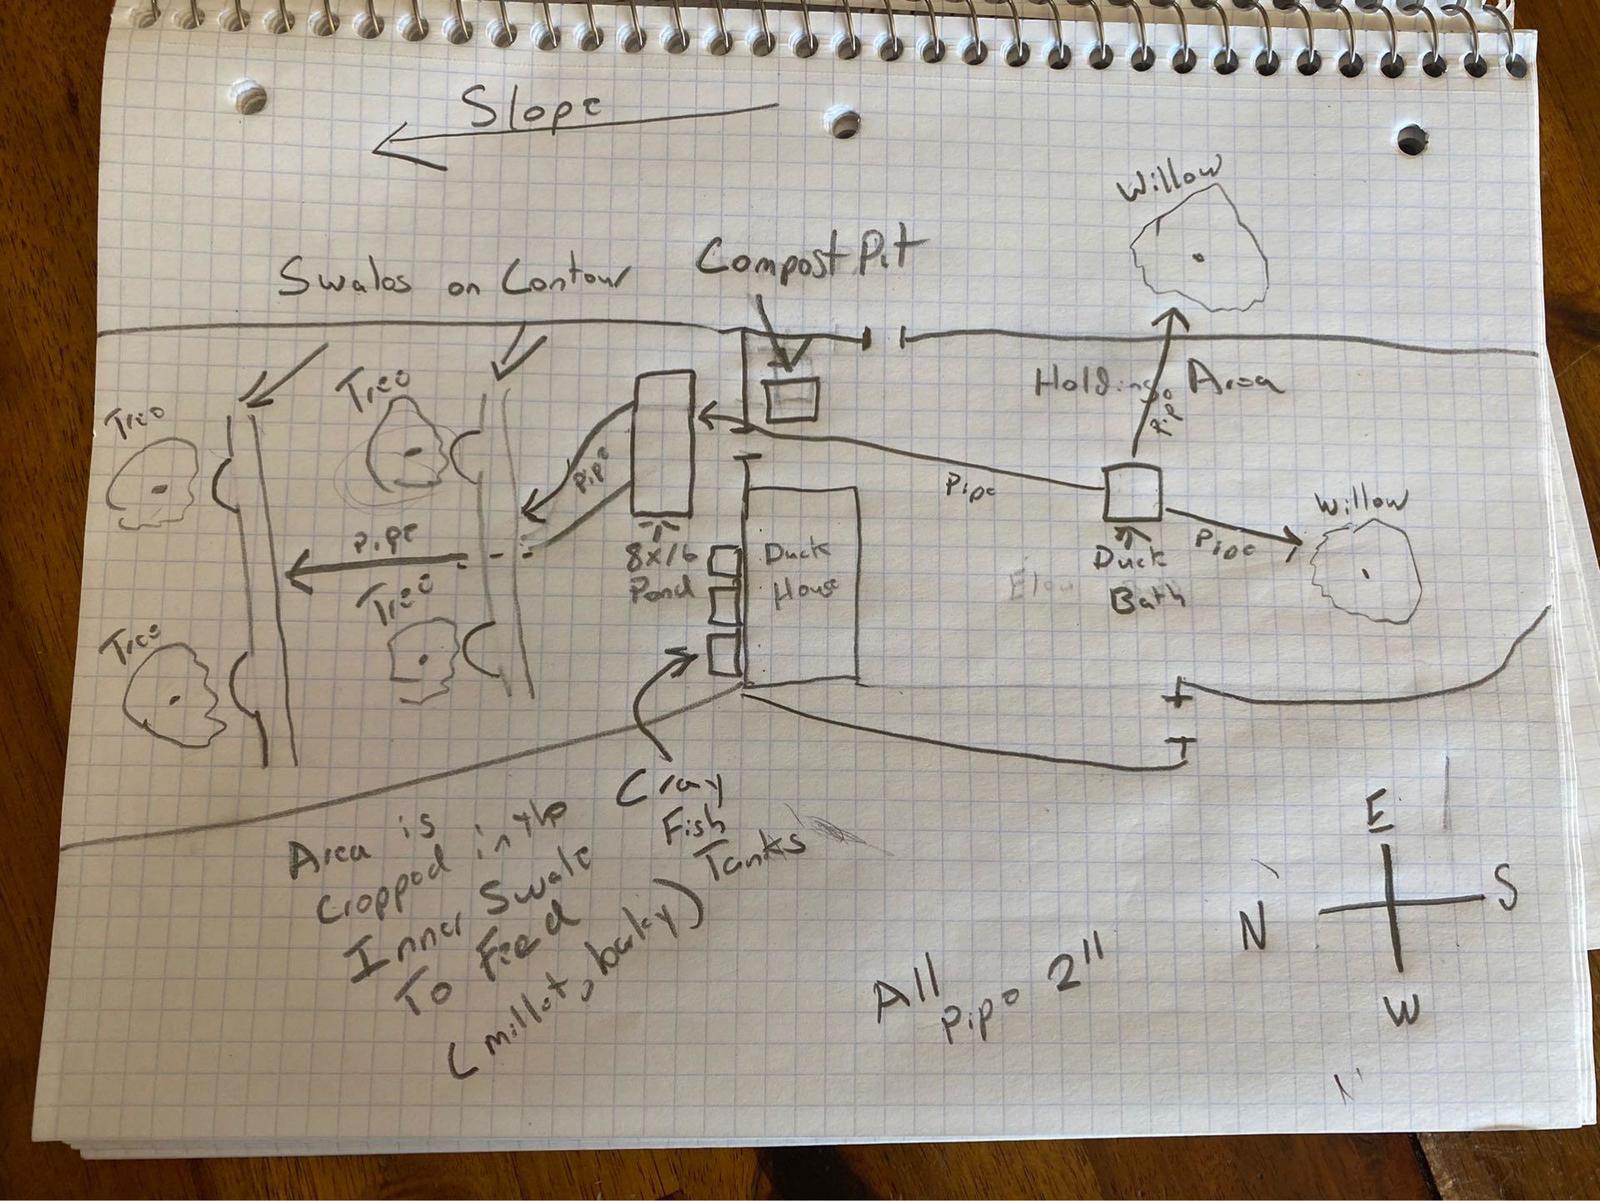 Slope
Willow
Compost Pit
Swales on Contour
Holding Area
Tree
Tree
Pipe
Pipe
Pipe
Willow
Pipe
Pipe
8x16
Pond
Duck
House
Duck
Bath
Tree
Tree
Cray
Fish
Tanks
Area is
Cropped in the
Inner Swale
To Feed
(millet, barley)
All
pipe 2"
E
N
S
W